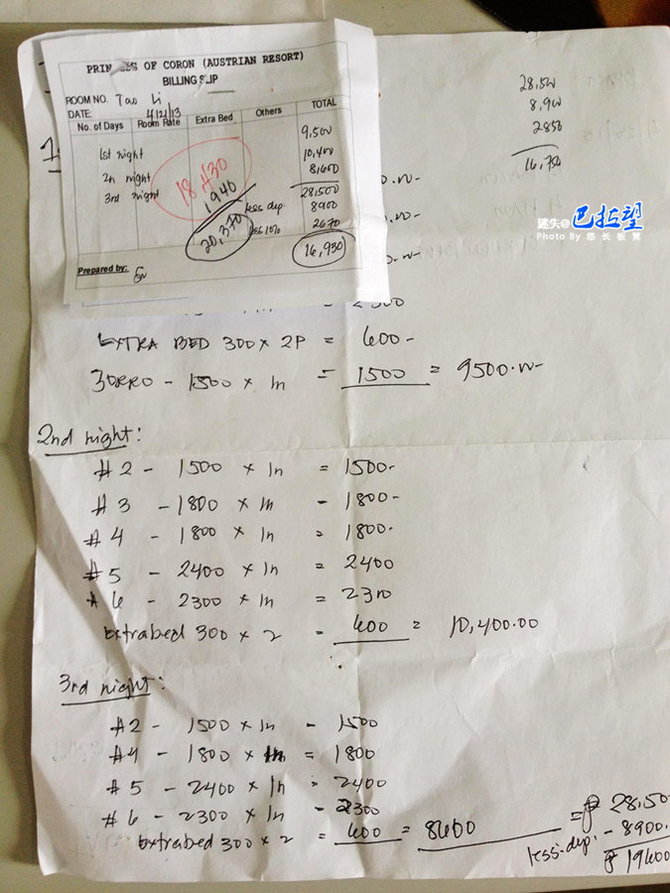 OF CORON (AUSTRIAN RESORT)
BILLING SLIP
ROOM NO. Tao Li
DATE: 4/21/13
No. of Days Room Rate Extra Bed Others TOTAL
9,500
1st night 10,400
2n night 8,600
3rd night 28,500
18,430
1940
less dep. 8900
20,370 less 10% 2670
16,930
Prepared by:
28,500
8,900
2850
16,750
迷失@巴拉望
Photo By 悠长假期
EXTRA BED 300 x 2P = 600-
- 1500 x 1n = 1500 = 9500.00
2nd night:
#2 - 1500 x 1n = 1500-
#3 - 1800 x 1n - 1800-
#4 - 1800 x 1n = 1800-
#5 - 2400 x 1n = 2400
#6 - 2300 x 1n = 2300
Extrabed 300 x 2 = 600 = 10,400.00
3rd night:
#2 - 1500 x 1n - 1500
#4 - 1800 x 1n = 1800
#5 - 2400 x 1n = 2400
#6 - 2300 x 1n - 2300
Extrabed 300 x 2 = 600 = 8600 = ₱ 28,50
less: dep: - 8900.
₱ 19600